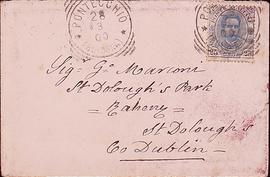 PONTECCHIO
28
3
00
Sig. Go Marconi
St Dolough's Park
Raheny
St Dolough's
Co Dublin